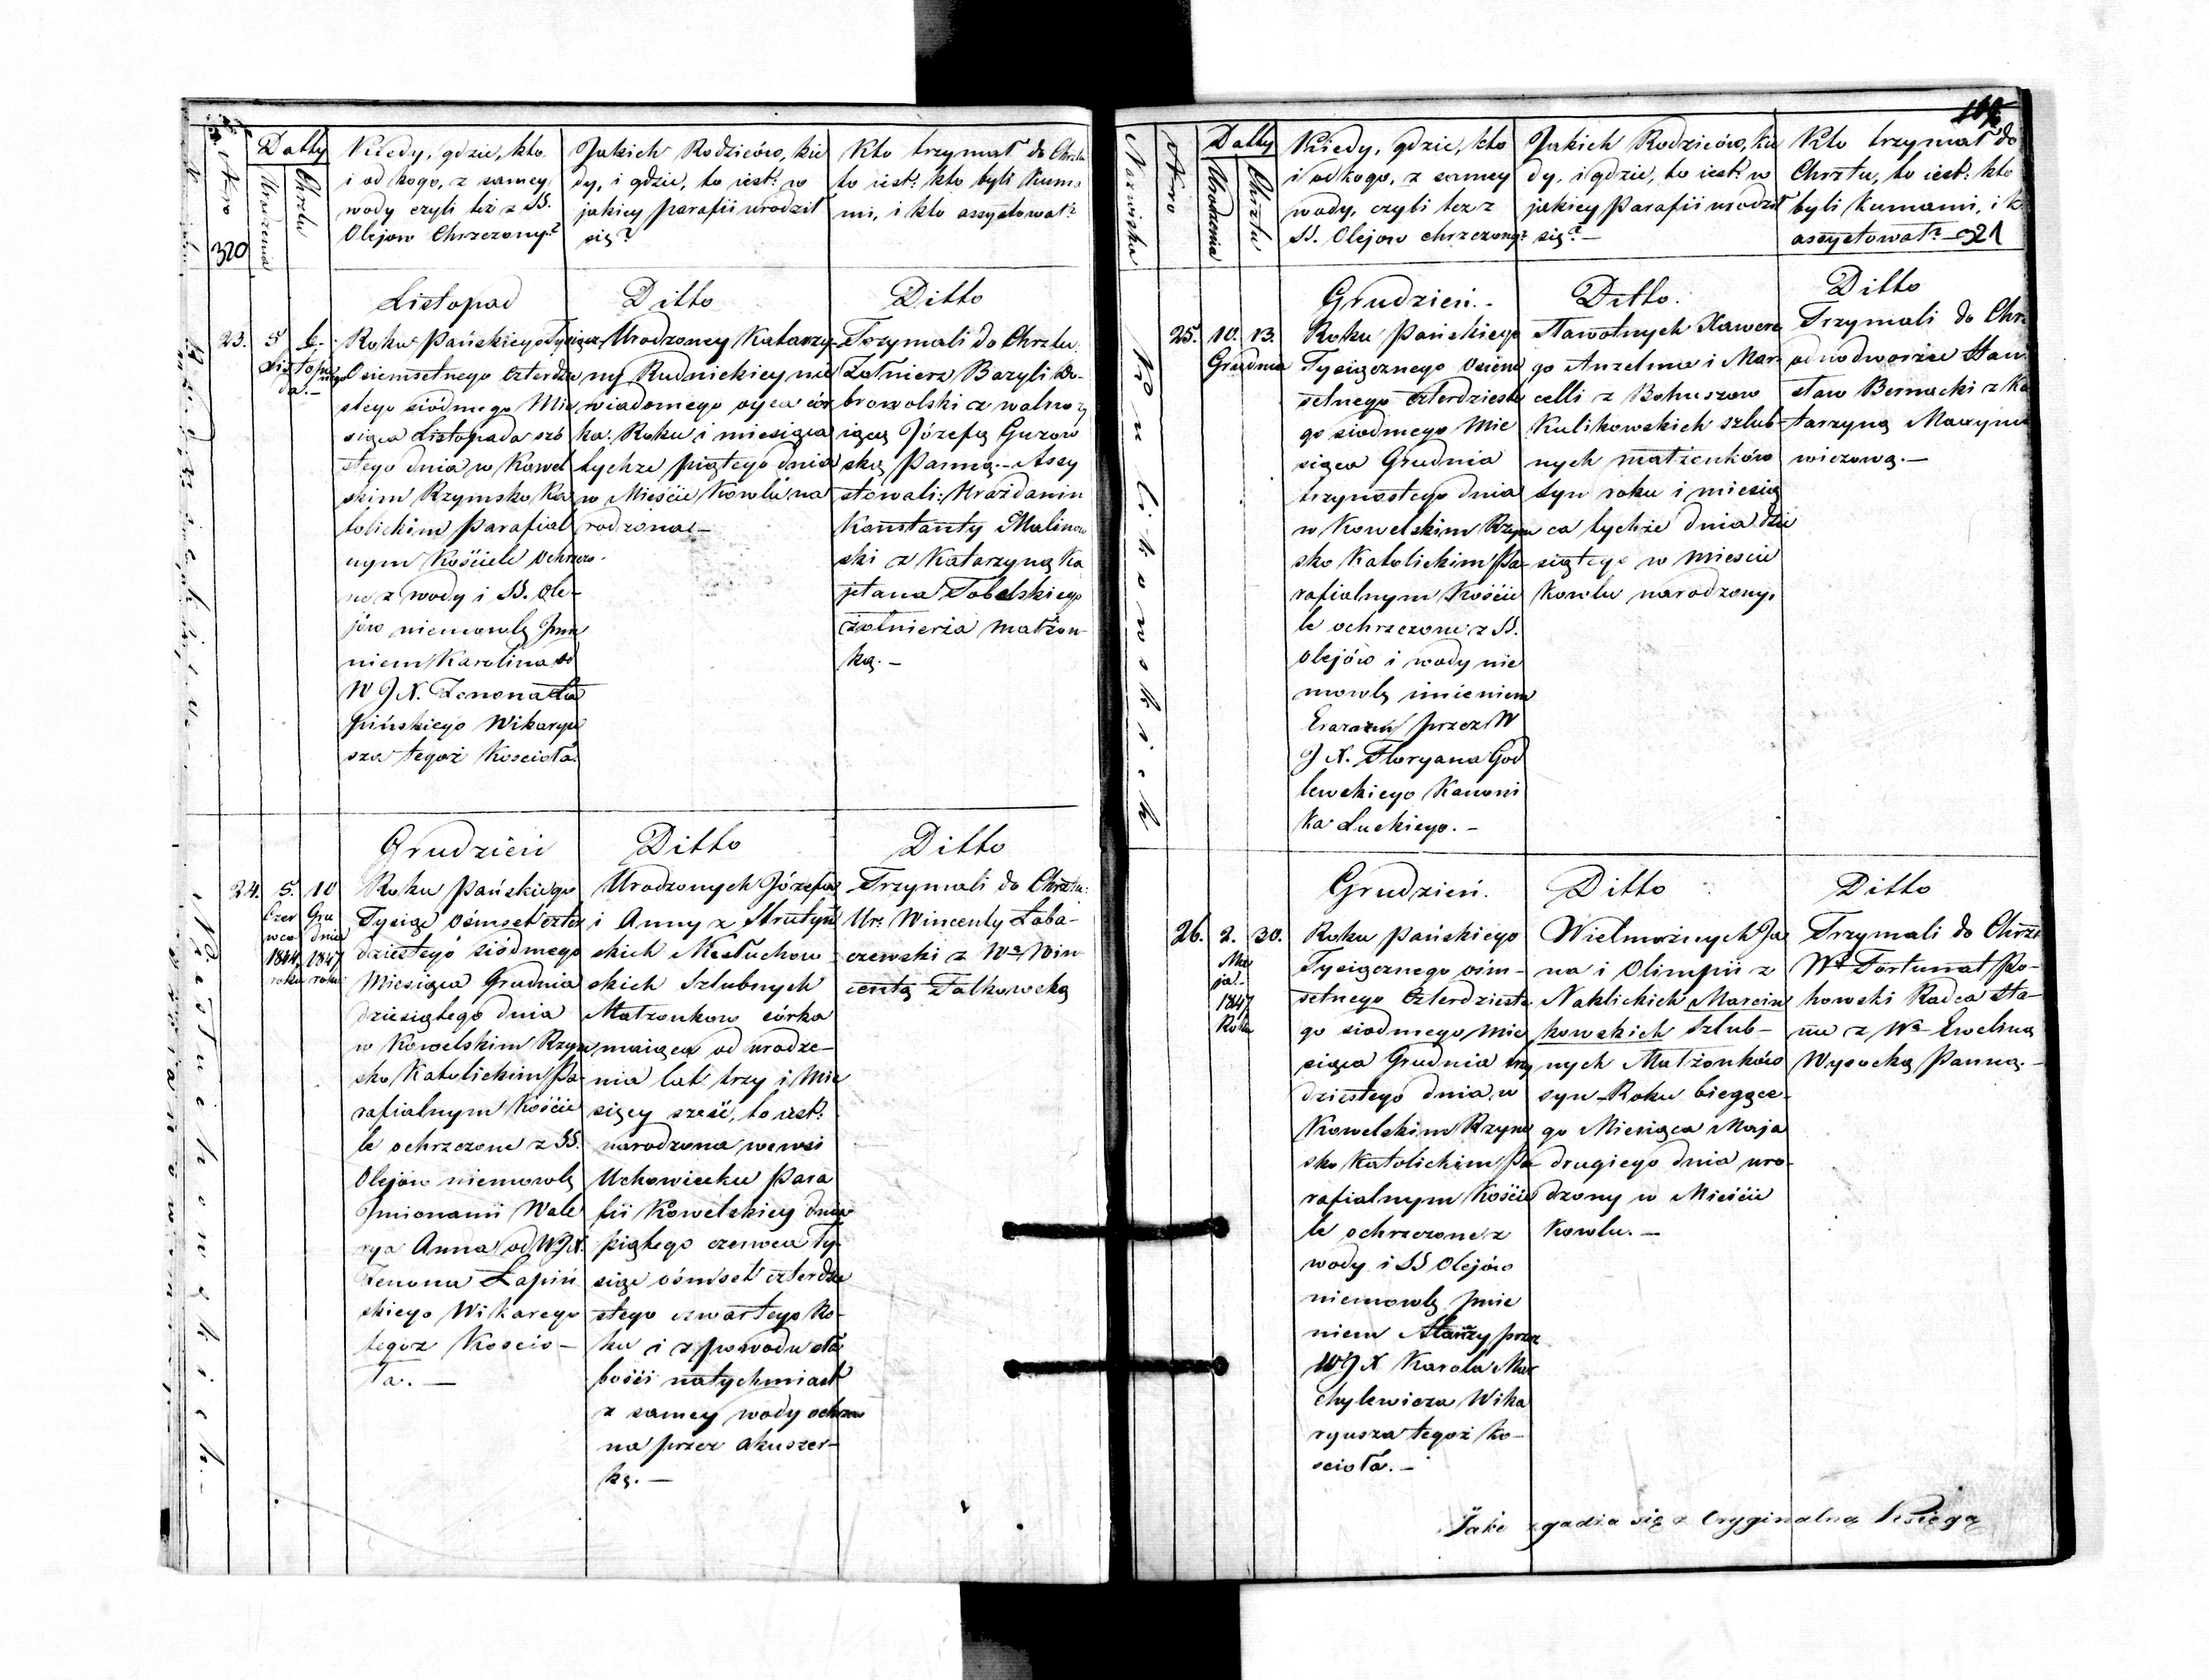 320
Nro
Datty
Urodzenia
Chrztu
Kiedy, gdzie, kto
i od kogo, z samey
wody czyli też z SS.
Olejow Chrzczony?
Jakich Rodziców, kie
dy, i gdzie, to iest: w
jakiey parafii urodził
się?
Kto trzymał do Chrztu
to iest: kto byli Kuma
mi, i kto assystował?
Listopad
Ditto
Ditto
23.
5
6.
Listopa
da.-
Roku Pańskiego Tysiącz
nego Osiemsetnego czterdzie
stego siódmego Mie
siąca Listopada szó
stego dnia w Kowel
skim Rzymsko Ka
tolickim Parafial
nym Kościele ochrzczo
ne z wody i SS. Ole-
jów niemowle Jmie
niem Karolina od
W J X. Zenona Ła
pińskiego Wikaryu
sza tegoż Kościoła.
Urodzoney Katarzy-
ny Rudnickiey nie
wiadomego oyca cór
ka. Roku i miesiąca
tychże piątego dnia
w Mieście Kowlu na
rodzona.-
Trzymali do Chrztu.
Żołnierz Bazyli Do-
browolski z
Józefą Guzow
ską Panną.- Assy
stowali: Grażdanin
Konstanty Malinow
ski z Katarzyną Ka
jetana Tobolskiego
żołnierza małżon-
ką.-
Grudzień
Ditto
Ditto
24.
5.
Czer
wca
1844
roku
10
Gru
dnia
1847
roku
Roku Pańskiego
Tysiąc ośmset czter
dziestego siódmego
Miesiąca Grudnia
dziesiątego dnia
w Kowelskim Rzym
sko Katolickim Pa-
rafialnym Koście
le ochrzczone z SS.
Olejów niemowle
Jmionami Wale
rya Anna od WJX.
Zenona Łapiń
skiego Wikarego
tegoz Koscio-
ła. —
Urodzonych Józefa
i Anny z Strutyń
skich Niesłuchow
skich Szlubnych
Matzonkow córka
maiąca od urodze-
nia lat trzy i Mie
sięcy sześć, to iest:
narodzona we wsi
Uchowiecku Para
fii Kowelskiey dnia
piątego czerwca ty-
siąc ośmset czterdzie
stego czwartego Ro-
ku i z powodu sła
bości natychmiast
z samey wody ochrzczo
na przez akuszer-
kę. —
Trzymali do Chrztu:
Ur: Wincenty Łoba-
czewski z Wą Win
centą Falkowską
Nazwiska
Nro
Datty
Urodzenia
Chrztu
Kiedy, gdzie, kto
i od kogo, z samey
wody, czyli tez z
SS. Olejow chrzczony?
Jakich Rodziców, kie
dy, i gdzie, to iest: w
jakiey Parafii urodził
się?-
Kto trzymał do
Chrztu, to iest: kto
byli Kumami, i k
assystował? 321
Grudzień.-
Ditto.
Ditto
25.
10.
13.
Grudnia
Roku Pańskiego
Tysiącznego Osiem
setnego czterdzieste
go siodmego Mie
siąca Grudnia
trzynastego dnia
w Kowelskim Rzym
sko Katolickim Pa-
rafialnym Kościo
le ochrzczone z SS.
Olejów i wody nie
mowlę imieniem
przez W
J X. Floryana God
lewskiego Kanoni
ka Łuckiego.-
Sławotnych Xawere
go Anzelma i Mar
celli z Bohuszow
Kulikowskich szlub-
nych matżonków
syn roku i miesią
ca tychże dnia dzie
siątego w Mieście
Kowlu narodzony.
Trzymali do Chr
odnodworzec Stan
sław Bernacki z Ka
tarzyną Maxymo
wiczową.-
Grudzień.
Ditto
Ditto
26.
2.
Ma
ja.
1847
Roku
30.
Roku Pańskiego
Tysiącznego ośm-
setnego Czterdzieste
go siodmego Mie
siąca Grudnia trzy
dziestego dnia, w
Kowelskim Rzym
sko Katolickim Pa-
rafialnym Kościo
le ochrzczone z
wody i SS Olejów
niemowlę Jmie
niem przez
WJX Karola Mac
chylewicza Wika
ryusza tegoż Ko-
scioła.-
Wielmożnych Ja
na i Olimpii z
Nahlickich Marcin
kowskich Szlub-
nych Małżonków
syn - Roku bieżące-
go Miesiąca Maja
drugiego dnia uro-
dzony w Mieście
Kowlu. —
Trzymali do Chrzt
Wy Fortunat Po-
howski Radca Sta-
nu z Wą Eweliną
Wysocką Panną.-
Jako zgadza się z Oryginalną Księgą